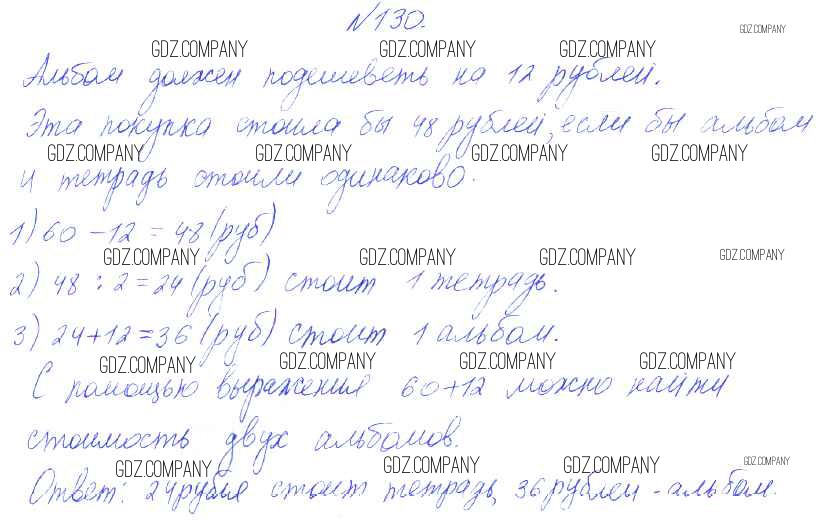 №130.
GDZ.COMPANY
GDZ.COMPANY GDZ.COMPANY GDZ.COMPANY
Альбом должен подешеветь на 12 рублей.
Эта покупка стоила бы 48 рублей, если бы альбом
GDZ.COMPANY GDZ.COMPANY GDZ.COMPANY GDZ.COMPANY
и тетрадь стоили одинаково.
1) 60 - 12 = 48 (руб)
GDZ.COMPANY GDZ.COMPANY GDZ.COMPANY GDZ.COMPANY
2) 48 : 2 = 24 (руб) стоит 1 тетрадь.
3) 24 + 12 = 36 (руб) стоит 1 альбом.
GDZ.COMPANY GDZ.COMPANY GDZ.COMPANY GDZ.COMPANY
С помощью выражения 60+12 можно найти
стоимость двух альбомов.
GDZ.COMPANY GDZ.COMPANY GDZ.COMPANY GDZ.COMPANY
Ответ: 24 рубля стоит тетрадь, 36 рублей - альбом.